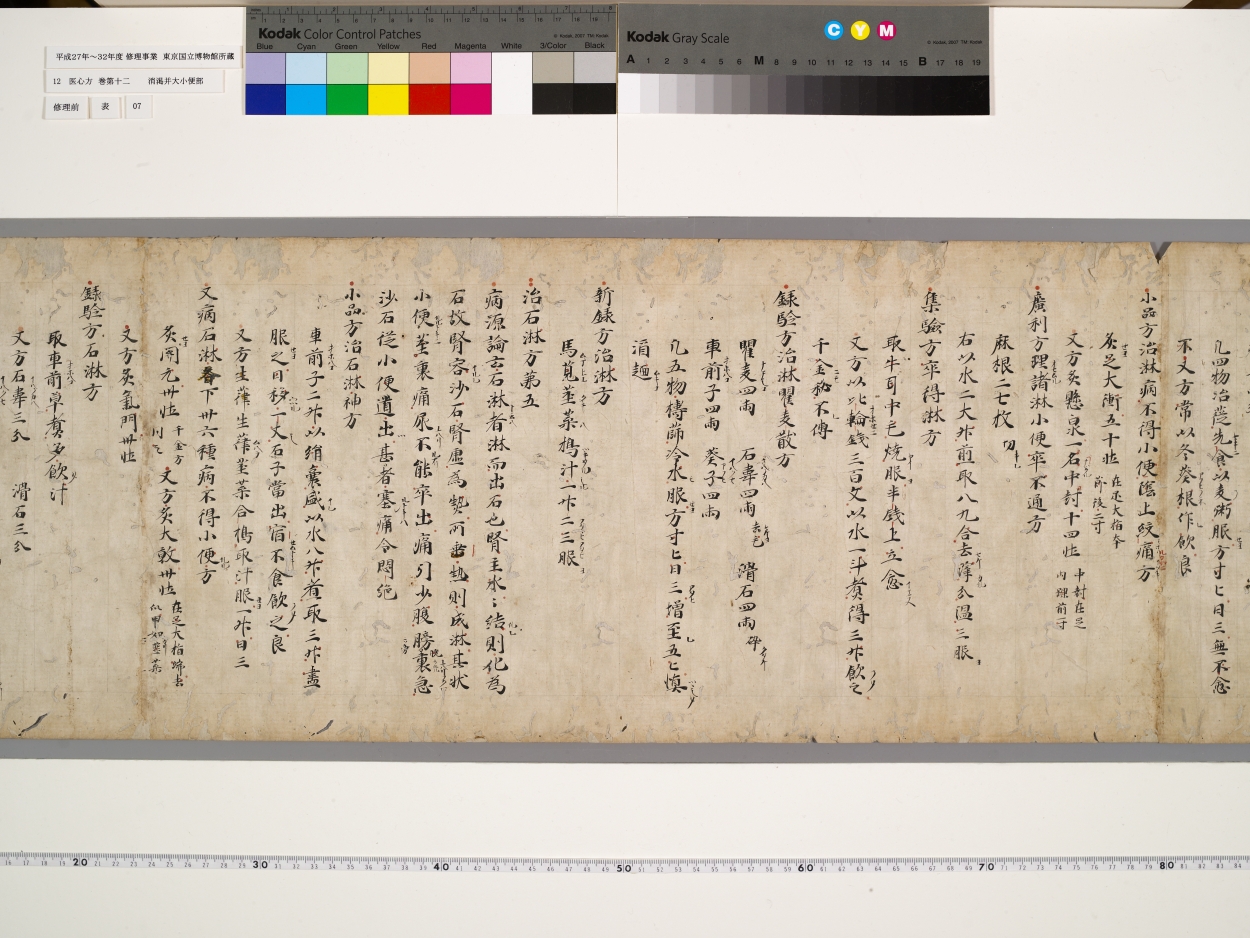 平成27年～32年度 修理事業 東京国立博物館所蔵
12 医心方 巻第十二 消渇并大小便部
修理前 表 07
Kodak Color Control Patches
© Kodak, 2007 TM: Kodak
Blue Cyan Green Yellow Red Magenta White 3/Color Black
Kodak Gray Scale
C Y M
© Kodak, 2007 TM: Kodak
A 1 2 3 4 5 6 M 8 9 10 11 12 13 14 15 B 17 18 19
凡四物治筵先食以麦粥服方寸匕日三無不愈
不又方常以冬葵根作飲良
小品方治淋病不得小便陰上絞痛方
灸足大衝五十壮 在足大指本節後二寸
又方灸懸泉一名中封十四壮 中封在足内踝前寸
廣利方理諸淋小便卒不通方
麻根二七枚 切
右以水二大升煎取八九合去滓分温三服
集驗方卒得淋方
取牛耳中毛燒服半錢上立愈
又方以比輪錢三百文以水一斗煑得三升飲之
千金秘不傳
録驗方治淋瞿麦散方
瞿麦四両 石韋四両 去毛 滑石四両 碎
車前子四両 葵子四両
凡五物檮篩冷水服方寸匕日三增至五匕慎
湎麺
新録方治淋方
馬莧莖葉搗汁一升二三服
治石淋方苐五
病源論云石淋者淋而出石也腎主水〻結則化為
石故腎客沙石腎虚為熱所乗熱則成淋其状
小便莖裏痛尿不能卒出痛引少腹膀裏急
沙石從小便道出甚者塞痛令悶絶
小品方治石淋神方
車前子二升以絹囊盛以水八升煮取三升盡
服之日移一丈石子當出宿不食飲之良
又方生葎生葎莖葉合搗取汁服一升日三
又病石淋臍下卅六種病不得小便方
灸關元卅壮 千金方同之 又方灸大敦卅壮 在足大指端去爪甲如韮葉
又方灸氣門卅壮
録驗方石淋方
取車前草煑多飲汁
又方石韋三分 滑石三分
20 30 40 50 60 70 80